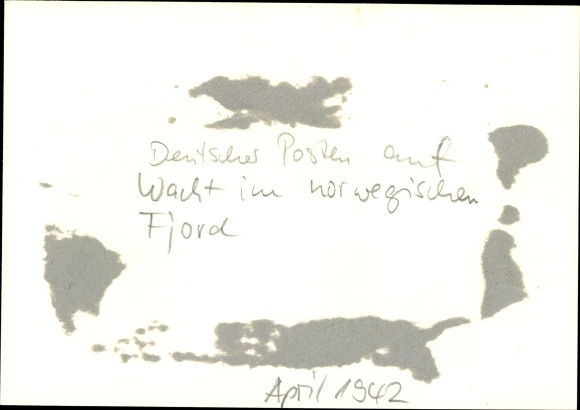 Deutscher Posten auf
Wacht im norwegischen
Fjord
April 1942